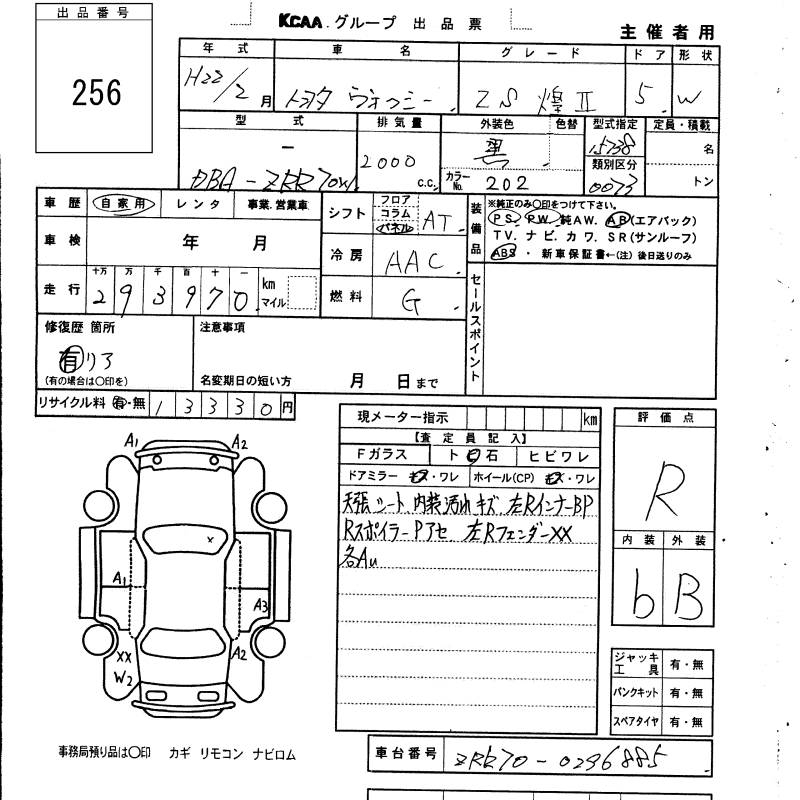 出品番号
256
KCAA グループ 出品票
主催者用
年式 車名 グレード ドア 形状
H22/2月 トヨタ ヴォクシー ZS 煌Ⅱ 5 W
型式 排気量 外装色 色替 型式指定 定員・積載
DBA-ZRR70W 2000 c.c. 黒 15738 名
カラーNo. 202 類別区分 0073 トン
車歴 自家用 レンタ 事業.営業車
シフト フロア コラム パネル AT
装備品
※純正のみ○印をつけて下さい。
P S. P W. 純A W. A B(エアバック)
T V. ナ ビ. カ ワ. S R(サンルーフ)
ABS・新車保証書←(注)後日送りのみ
車検 年 月
冷房 AAC
走行 十万 万 千 百 十 一 km マイル
293970
燃料 G
セールスポイント
修復歴 箇所
有 リア
(有の場合は○印を)
注意事項
名変期日の短い方 月 日まで
リサイクル料 有・無 13330円
現メーター指示 km
【査定員記入】
Fガラス ト 石 ヒビワレ
ドアミラー キズ・ワレ ホイール(CP) キズ・ワレ
天張シート、内装汚れキズ 左RインナーBP
RスポイラーPアセ 左RフェンダーXX
各AU
評価点
R
内装 外装
b B
A1 A2
x
A1
A3
XX
W2
A2
ジャッキ工具 有・無
パンクキット 有・無
スペアタイヤ 有・無
事務局預り品は○印 カギ リモコン ナビロム
車台番号 ZRR70-0296885